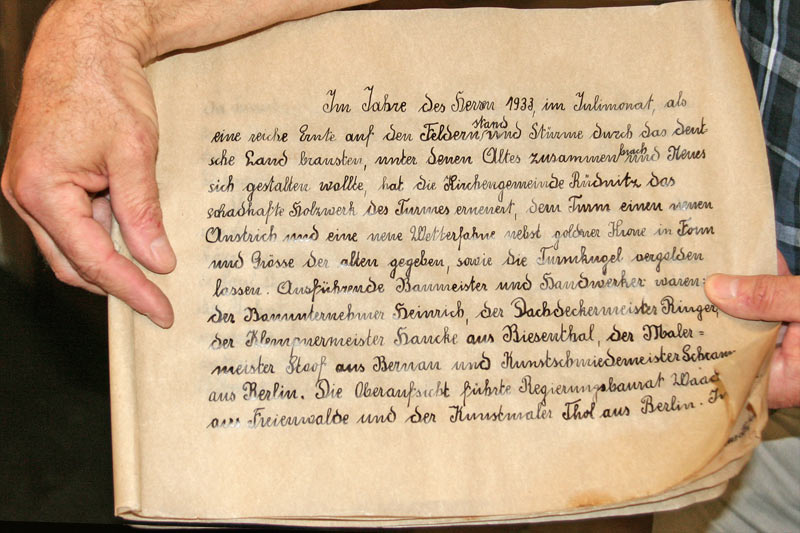 Im Jahre des Herrn 1933, im Julimonat, als
eine reiche Ernte auf den Feldern stand und Stürme durch das deut-
sche Land brausten, unter denen Altes zusammenbrach und Neues
sich gestalten wollte, hat die Kirchengemeinde Rüdnitz das
schadhafte Holzwerk des Turmes erneuert, dem Turm einen neuen
Anstrich und eine neue Wetterfahne nebst goldner Krone in Form
und Grösse der alten gegeben, sowie die Turmkugel vergolden
lassen. Ausführende Baumeister und Handwerker waren:
der Bauunternehmer Heinrich, der Dachdeckermeister Ringer,
der Klempnermeister Hancke aus Biesenthal, der Maler=
meister Stoof aus Bernau und Kunstschmiedemeister Schram
aus Berlin. Die Oberaufsicht führte Regierungsbaurat
aus Freienwalde und der Kunstmaler Thol aus Berlin.